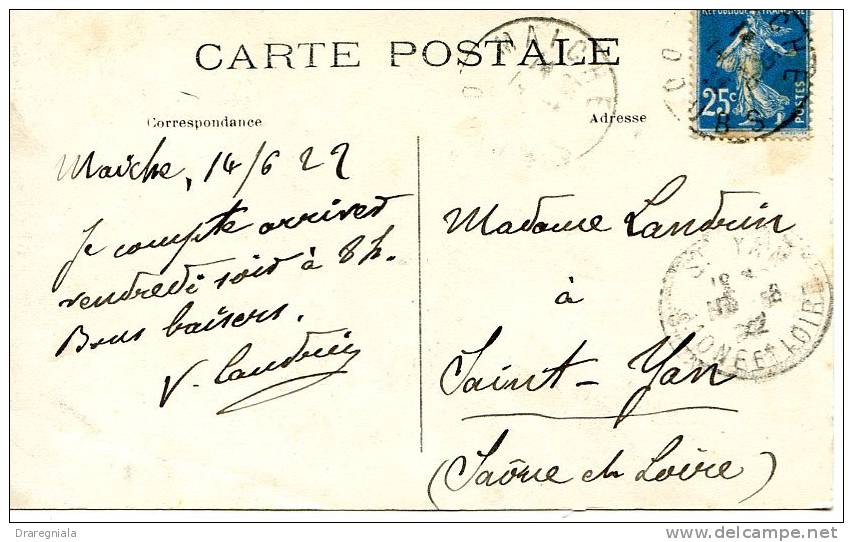 CARTE POSTALE
Correspondance
Maîche, 14/6 22
Je compte arriver
vendredi soir à 8 h.
Bons baisers.
V. Landrin
Adresse
Madame Landrin
à
Saint-Yan
(Saône et Loire)
MAICHE
DOUBS
RÉPUBLIQUE FRANÇAISE
25c
POSTES
ST YAN
SAONE ET LOIRE
Draregniala
delcampe.net